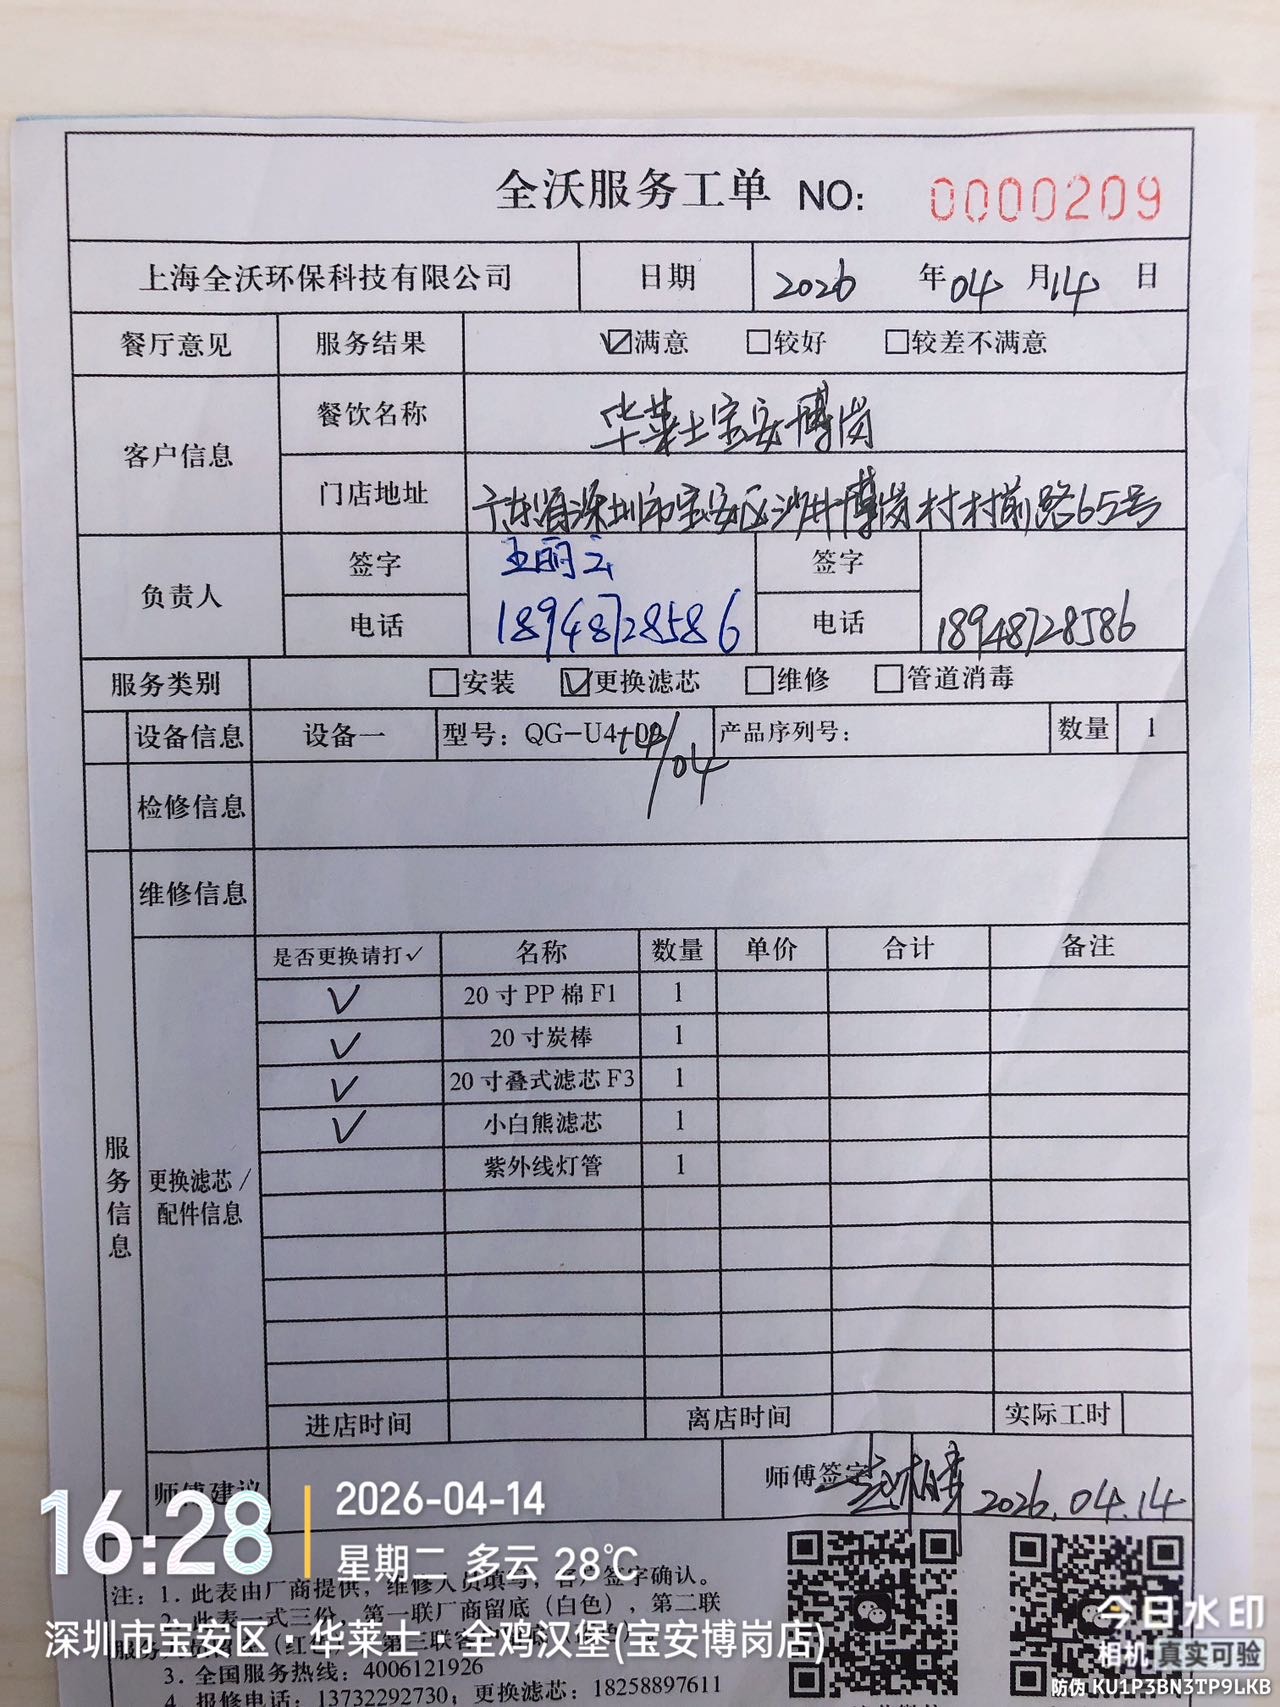 全沃服务工单 NO: 0000209
上海全沃环保科技有限公司 日期 2026 年 04 月 14 日
餐厅意见 服务结果 ☑满意 □较好 □较差不满意
客户信息 餐饮名称 华莱士宝安博岗
门店地址 广东省深圳市宝安区沙井博岗村村前路65号
负责人 签字 王丽云 签字
电话 18948728586 电话 18948728586
服务类别 □安装 ☑更换滤芯 □维修 □管道消毒
设备信息 设备一 型号：QG-U4 /04 产品序列号： 数量 1
检修信息
维修信息
服务信息
更换滤芯/
配件信息
是否更换请打✓ 名称 数量 单价 合计 备注
✓ 20寸PP棉F1 1
✓ 20寸炭棒 1
✓ 20寸叠式滤芯F3 1
✓ 小白熊滤芯 1
紫外线灯管 1
进店时间 离店时间 实际工时
师傅建议 师傅签字 2026.04.14
16:28
2026-04-14
星期二 多云 28℃
深圳市宝安区·华莱士·全鸡汉堡(宝安博岗店)
注：1. 此表由厂商提供，维修人员填写，客户签字确认。
2. 此表一式三份，第一联厂商留底（白色），第二联
3. 全国服务热线：4006121926
4. 报修电话：13732292730；更换滤芯：18258897611
今日水印
相机 真实可验
防伪 KU1P3BN3TP9LKB